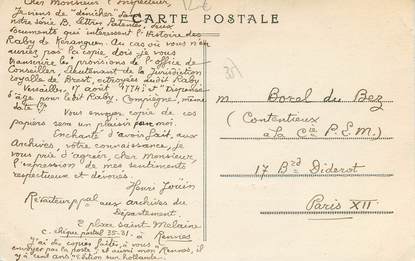 Cher Monsieur l'Inspecteur,
CARTE POSTALE
Je viens de "dénicher" dans
notre série B, lettres Patentes, deux
documents qui intéressent l'Histoire des
Raby de Kerangrun. Au cas où vous n'en
auriez pas la copie, dois-je vous
transcrire les provisions de l'office de
Conseiller, Lieutenant de la Juridiction
royale de Brest, octroyées audit Raby
Versailles, 17 août 1774; et "Dispense
d'âge pour ledit Raby. Compiègne, même
date"?
Vous envoyer copie de ces
papiers sera un plaisir pour moi.
Enchanté d'avoir fait, aux
Archives, votre connaissance, je
vous prie d'agréer, cher Monsieur,
l'expression de mes sentiments
respectueux et dévoués.
Henri Jouin
Rédacteur ppal aux archives du
Département.
2 place Saint-Melaine
C. chèque postal 35-31. à Rennes
J'ai des copies faites, à vous
envoyer par la poste, et aussi mon "Rennes, il
y a cent ans" édition sur hollande.
M. Boral du Bez
(Contentieux
à la Cie P.E.M.)
17 Bd Diderot
Paris XII